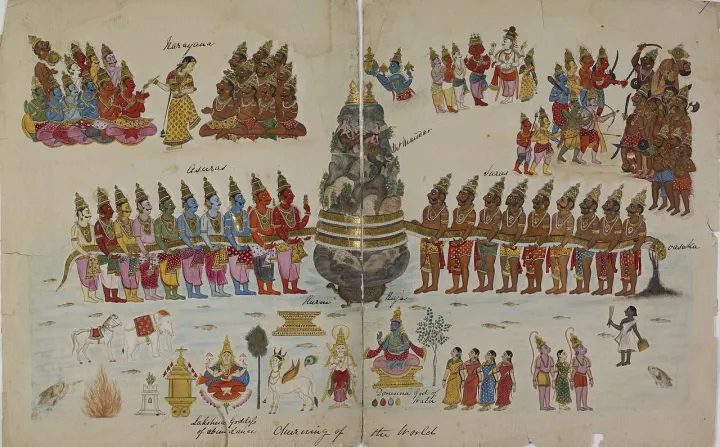 Narayana
Mt Mandar
Asuras
Suras
Vasuka
Kurma Raja
Lakshmi Goddess
of abundance
God of
Water
Churning of the World